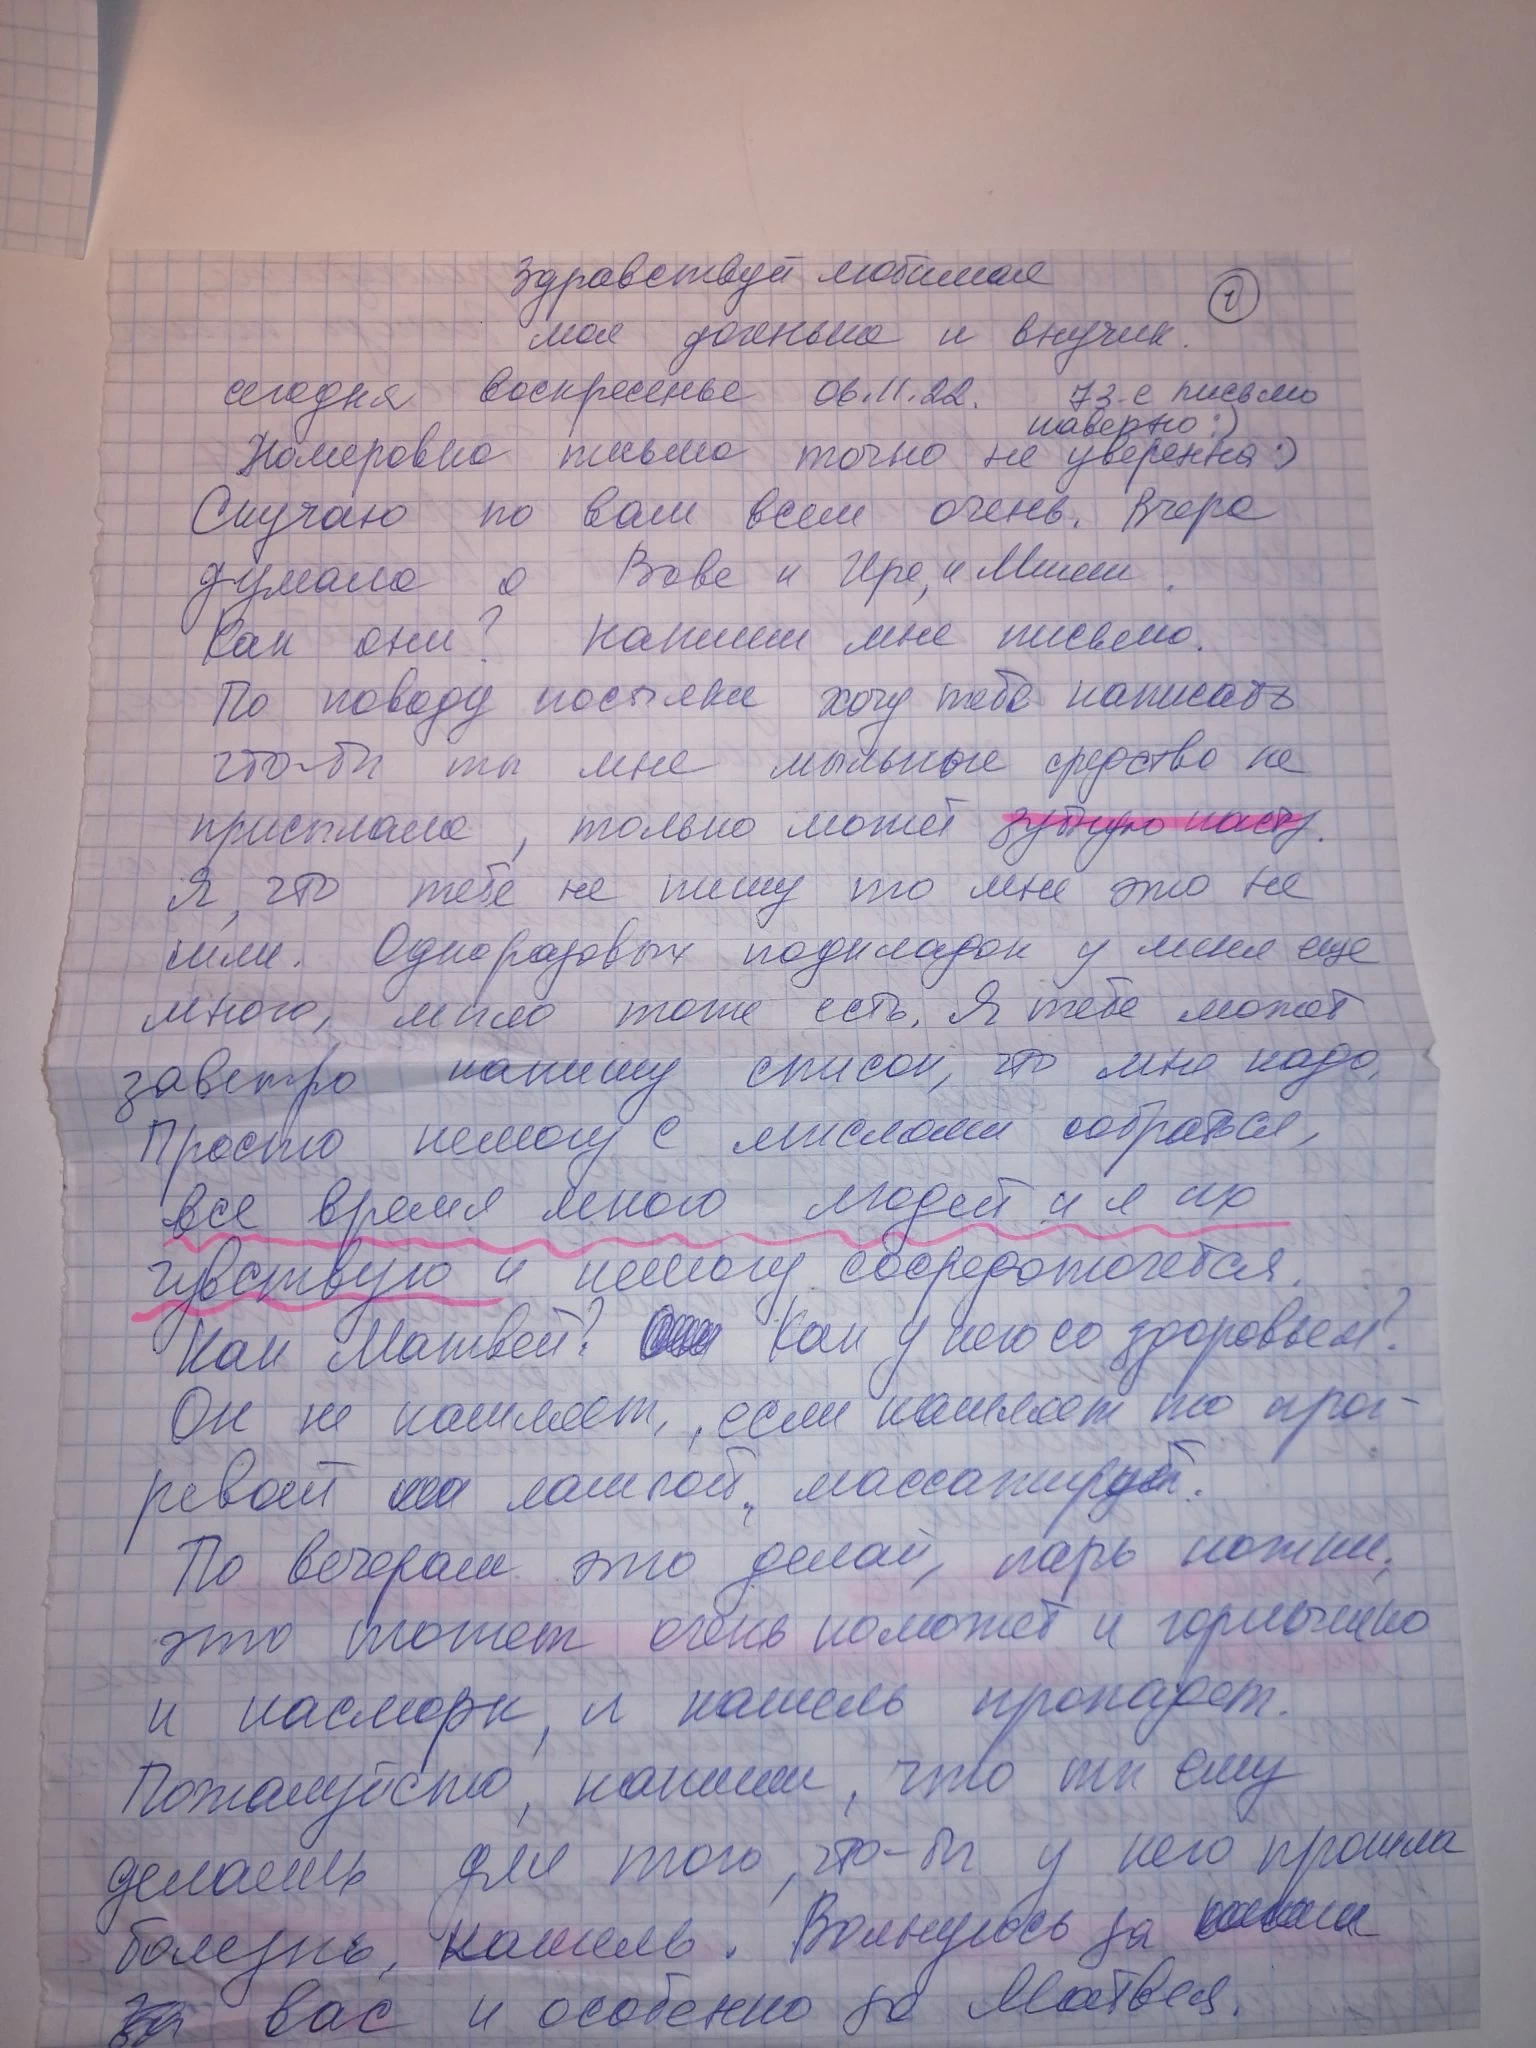 Здравствуй любимая
1
моя доченька и внучик.
сегодня воскресенье 06.11.22. 73-е письмо
наверно :)
Номеровка письма точно не уверенна :)
Скучаю по вам всем очень. Вчера
думала о Вове и Ире, и Миши.
Как они? Напиши мне письмо.
По поводу посылки хочу тебе написать
что-бы ты мне мыльные средства не
присылала, только может зубную пасту.
Я, что тебе не пишу то мне это не
шли. Одноразовых подкладок у меня еще
много, мыло тоже есть. Я тебе может
завтро напишу список, что мне надо.
Просто немогу с мыслями собраться,
все время много людей и я их
чувствую и немогу сосредоточется.
Как Матвей? Как у него со здоровьем?
Он не кашляет, если кашляет то прог-
ревай лампой, массажируй.
По вечерам это делай, парь ножки,
это может очень поможет и горлышко
и насморк, и кашель пропадет.
Пожалуйста, напиши, что ты ему
делаешь для того, что-бы у него прошла
болезнь, кашель. Волнуюсь за
вас и особенно за Матвея.